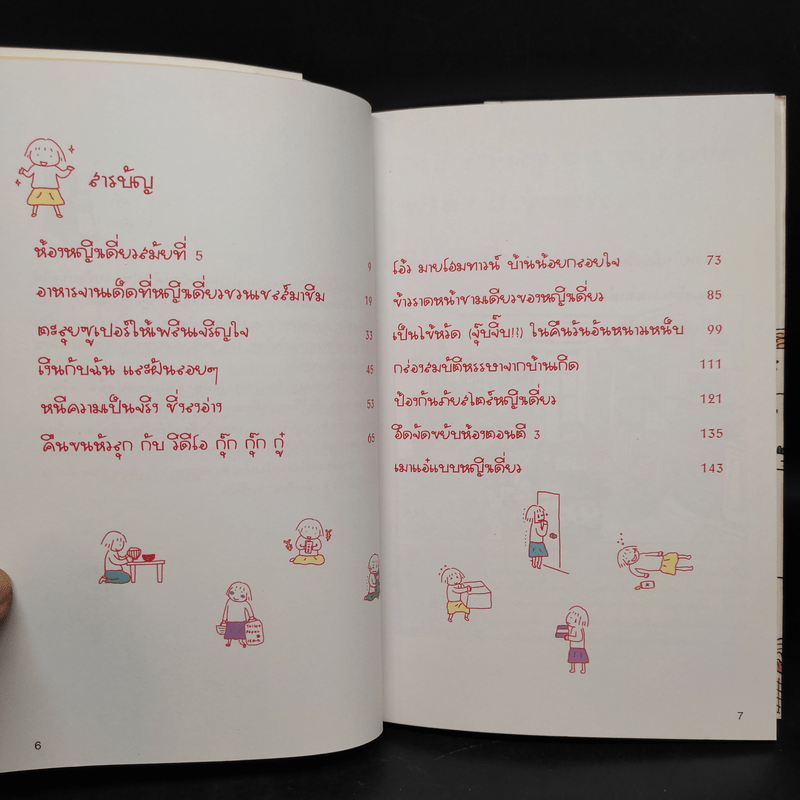 สารบัญ
ห้องหญิงเดี่ยวสมัยที่ 5 9
อาหารจานเด็ดที่หญิงเดี่ยวชวนเชลล์มาชิม 19
ตะลุยซูเปอร์ให้เพลินเจริญใจ 33
เงินกับฉัน และฝันลอยๆ 45
หนีความเป็นจริง ขี่งรงอ่าง 53
คืนขนหัวลุก กับ วิดีโอ กุ๊ก กุ๊ก กู๋ 65
6
โอ้ว มายโฮมทาวน์ บ้านน้อยกลอยใจ 73
ข้าวราดหน้าชามเดียวของหญิงเดี่ยว 85
เป็นไข้หวัด (จุ๊บจิ๊บ!!) ในคืนวันอันหนาวเหน็บ 99
กล่องสมบัติหรรษาจากบ้านเกิด 111
ป้องกันภัยสไตล์หญิงเดี่ยว 121
ฮึดจัดขยับห้องตอนตี 3 135
เมาแอ๋แบบหญิงเดี่ยว 143
7